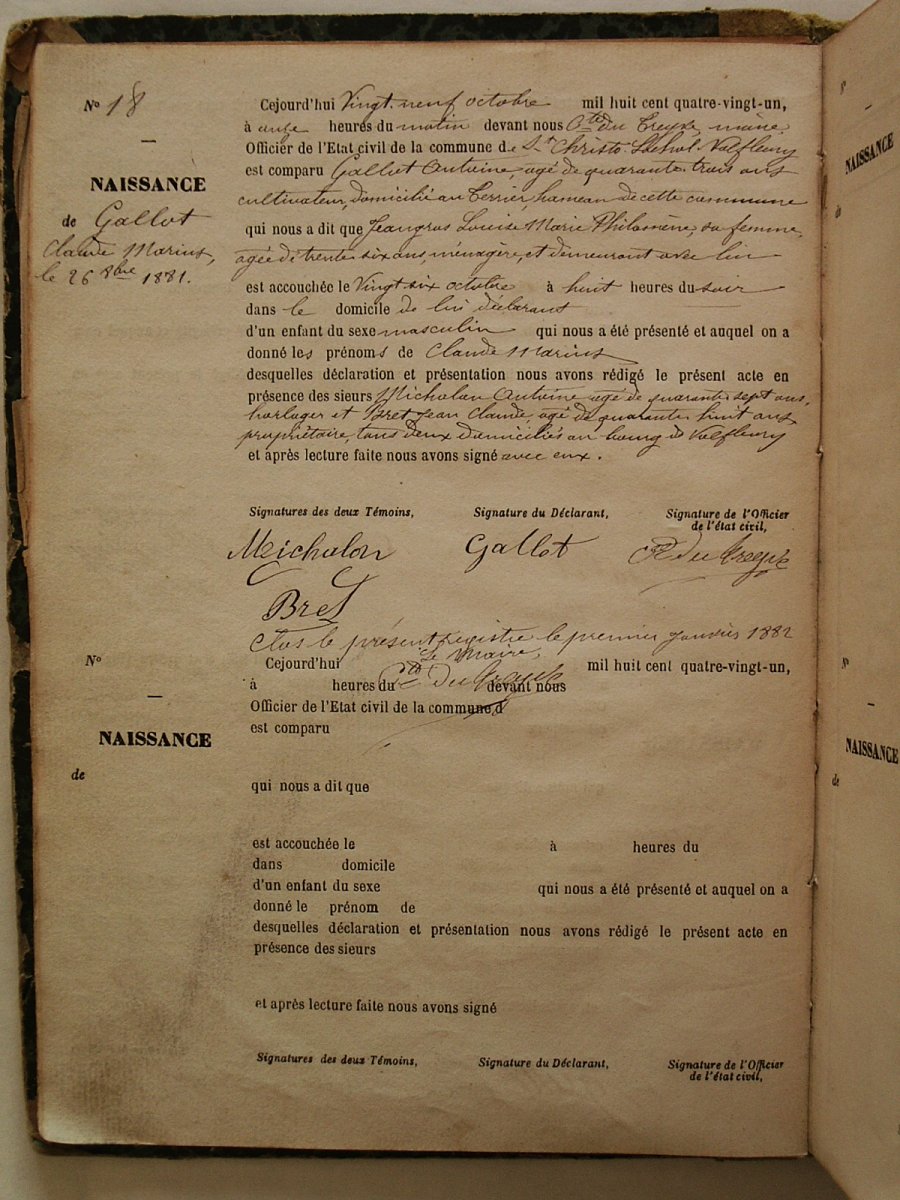 N° 18
NAISSANCE
de Gallot
Claude Marius,
le 26 8bre 1881.
Cejourd'hui Vingt-neuf octobre mil huit cent quatre-vingt-un,
à onze heures du matin devant nous Cte du Treyve, maire
Officier de l'Etat civil de la commune de St Christo-Lachal-Valfleury
est comparu Gallot Antoine, agé de quarante trois ans
cultivateur, domicilié au Terrier, hameau de cette commune
qui nous a dit que Jeangros Louise Marie Philomène, sa femme,
agée de trente six ans, ménagère, et demeurant avec lui
est accouchée le Vingt six octobre à huit heures du soir
dans le domicile de lui déclarant
d'un enfant du sexe masculin qui nous a été présenté et auquel on a
donné les prénoms de Claude Marius
desquelles déclaration et présentation nous avons rédigé le présent acte en
présence des sieurs Michalon Antoine agé de quarante sept ans,
horloger et Bret Jean Claude, agé de quarante huit ans
propriétaire, tous deux domiciliés au bourg de Valfleury
et après lecture faite nous avons signé avec eux.
Signatures des deux Témoins, Signature du Déclarant, Signature de l'Officier
de l'état civil,
Michalon Gallot Cte du Treyve
Bret
Clos le présent registre le premier janvier 1882
Le Maire,
Cte du Treyve
N°
NAISSANCE
de
Cejourd'hui mil huit cent quatre-vingt-un,
à heures du devant nous
Officier de l'Etat civil de la commune d
est comparu
qui nous a dit que
est accouchée le à heures du
dans domicile
d'un enfant du sexe qui nous a été présenté et auquel on a
donné le prénom de
desquelles déclaration et présentation nous avons rédigé le présent acte en
présence des sieurs
et après lecture faite nous avons signé
Signatures des deux Témoins, Signature du Déclarant, Signature de l'Officier
de l'état civil,
NAISSANCE
de
N°
NAISSANCE
de